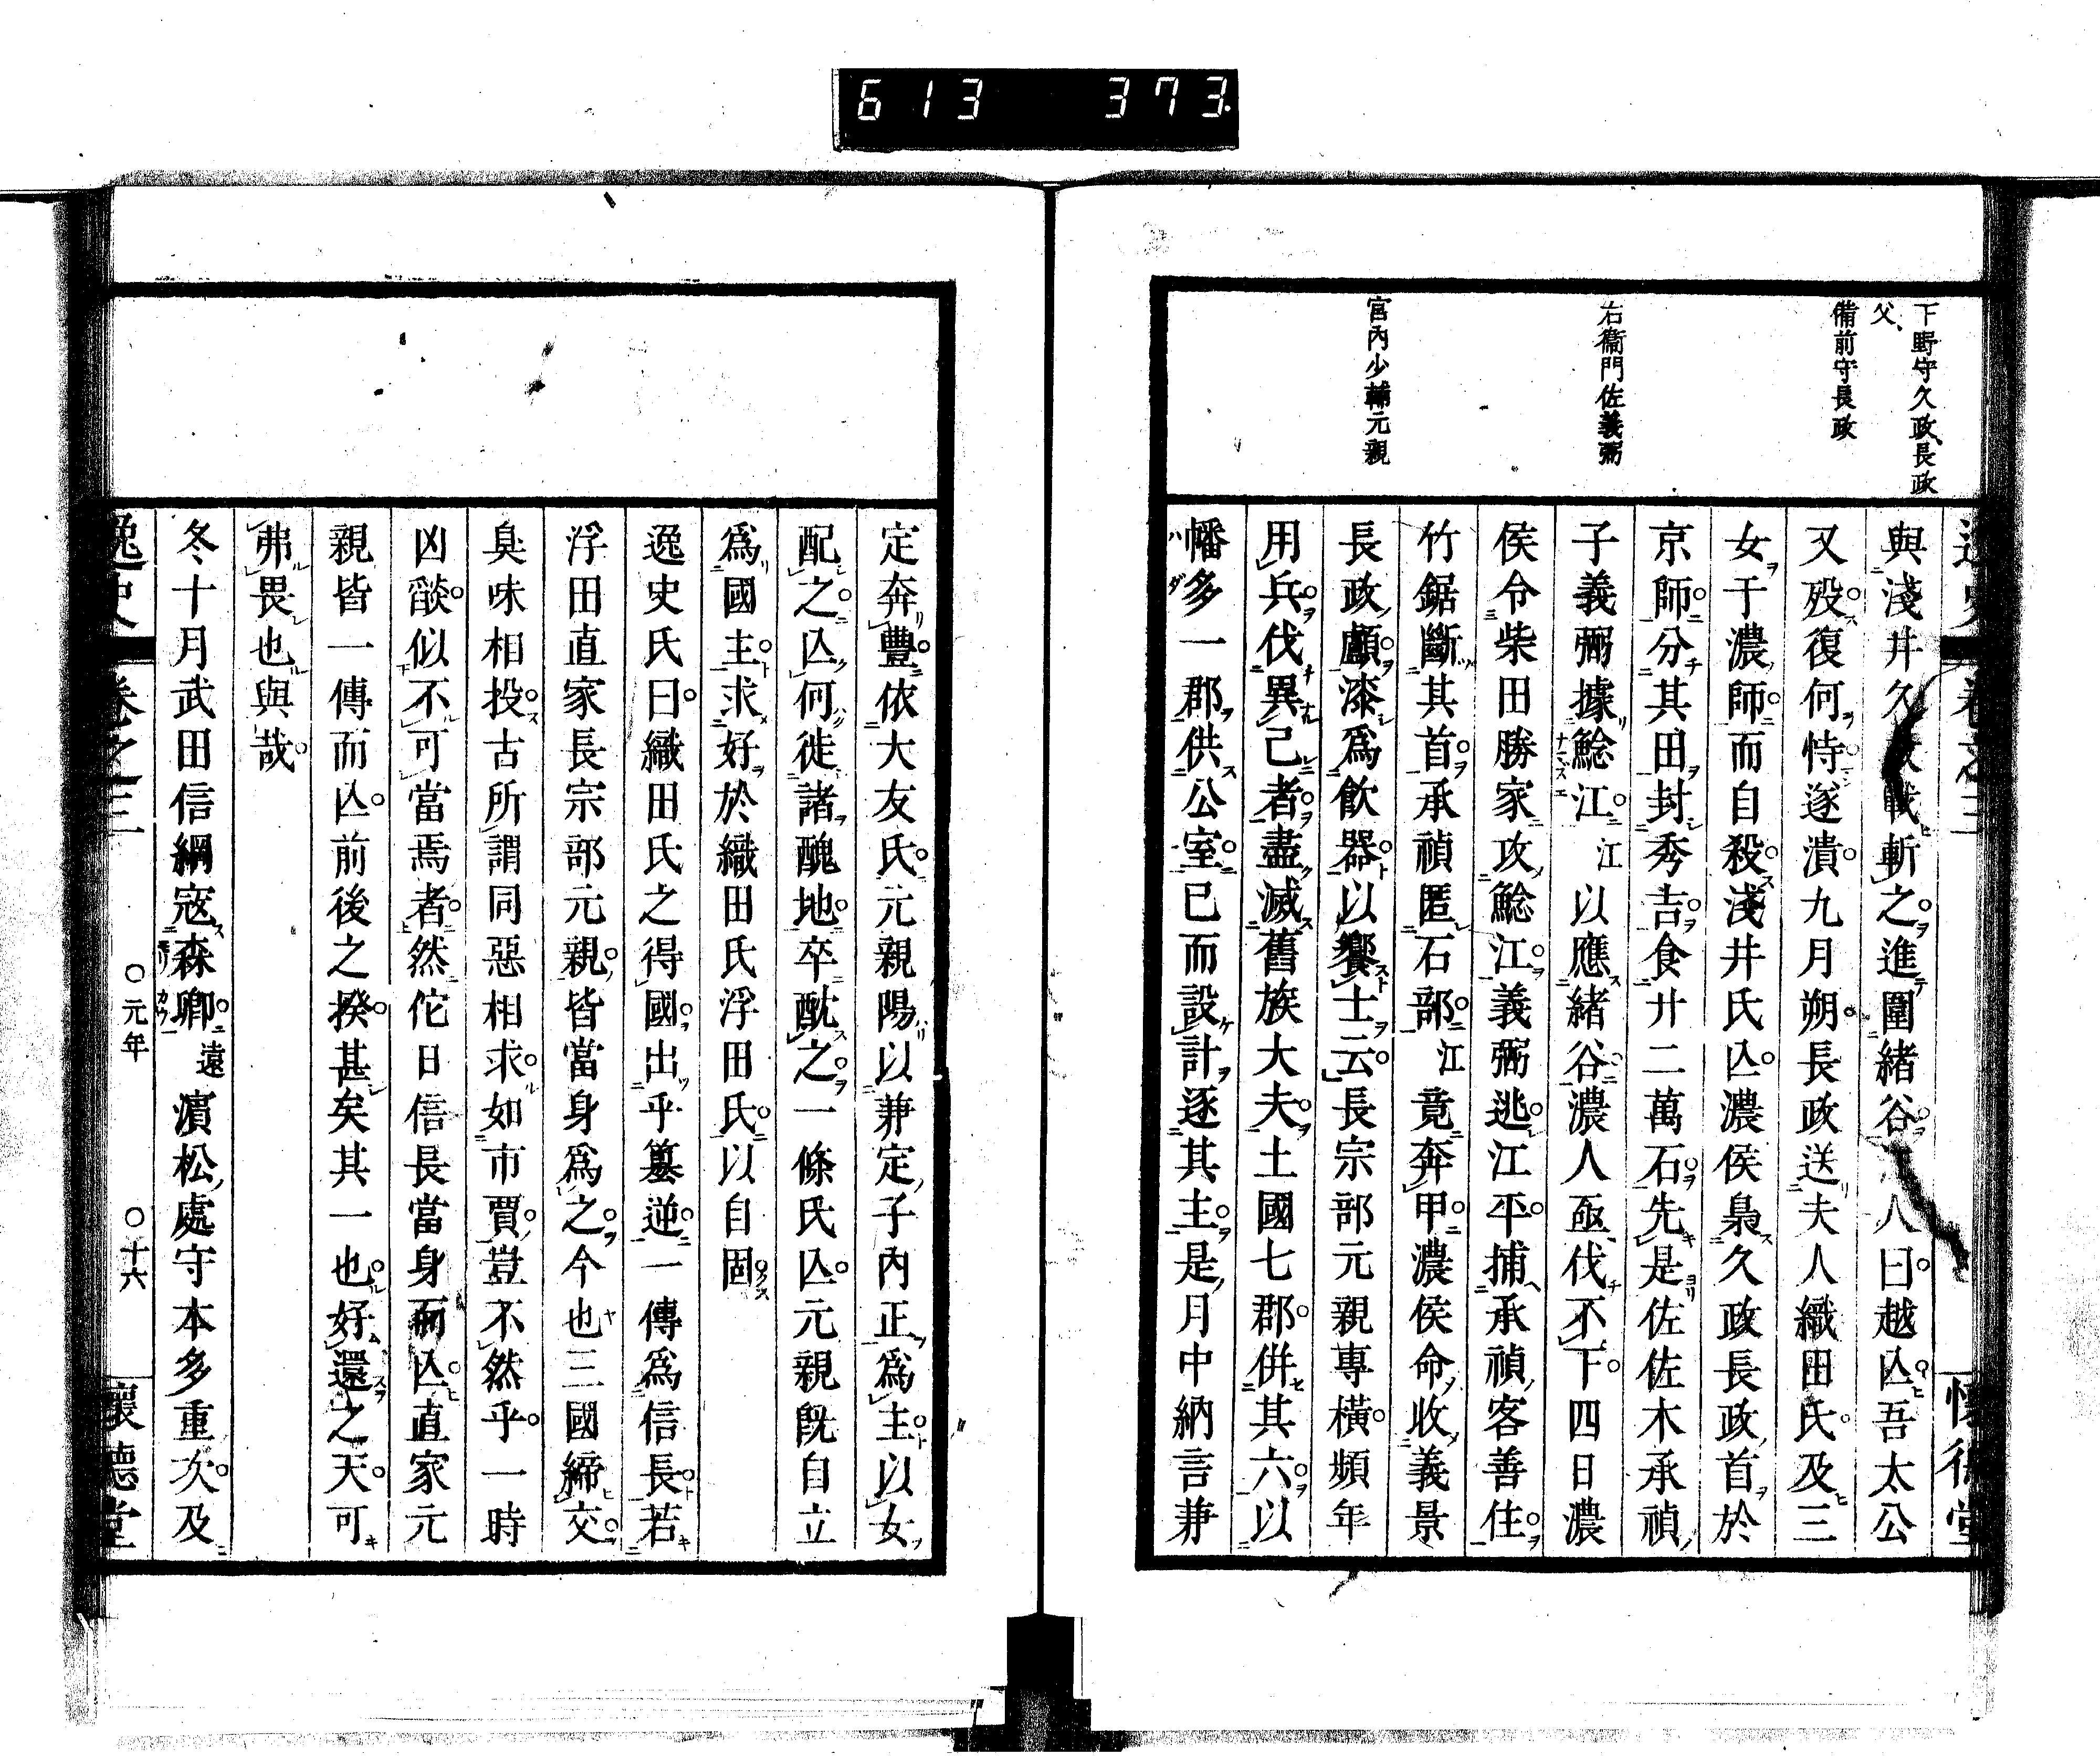 613 373
下野守久政、長政
父、
備前守長政
右衞門佐義弼
宮內少輔元親
逸史 卷之三 懷德堂
與淺井久政戰斬之進圍緖谷人曰越亾吾太公
又歿復何恃遂潰九月朔長政送夫人織田氏及三
女于濃師而自殺淺井氏亾濃侯梟久政長政首於
京師分其田封秀吉食廿二萬石先是佐佐木承禎
子義弼據鯰江江以應緖谷濃人亟伐不下四日濃
侯令柴田勝家攻鯰江義弼逃江平捕承禎客善住
竹鋸斷其首承禎匿石部江竟奔甲濃侯命收義景
長政顱漆爲飮器以饗士云長宗部元親專橫頻年
用兵伐異己者盡滅舊族大夫土國七郡併其六以
幡多一郡供公室已而設計逐其主是月中納言兼
定奔豐依大友氏元親陽以兼定子內正爲主以女
配之亾何徙諸醜地卒酖之一條氏亾元親旣自立
爲國主求好於織田氏浮田氏以自固
逸史氏曰織田氏之得國出乎簒逆一傳爲信長若
浮田直家長宗部元親皆當身爲之今也三國締交
臭味相投古所謂同惡相求如市賈豈不然乎一時
凶燄似不可當焉者然佗日信長當身而亾直家元
親皆一傳而亾前後之揆甚矣其一也好還之天可
弗畏也與哉
冬十月武田信綱寇森鄕遠濵松處守本多重次及
逸史 卷之三 ○元年 ○十六 懷德堂